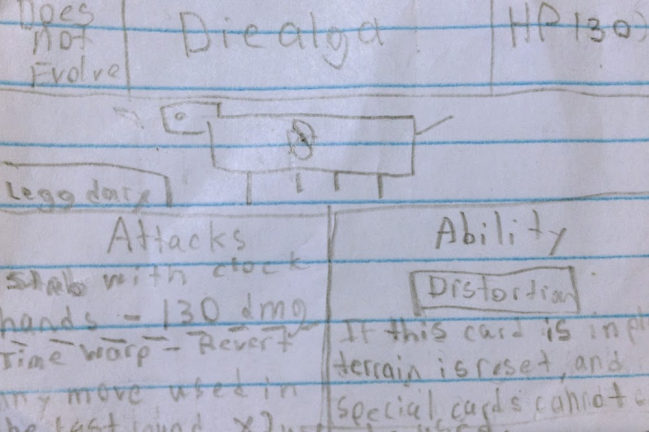 Does
not
Evolve
Diealga
HP 130
Leggdary
Attacks
Stab with clock
hands - 130 dmg
Time Warp - Revert
any move used in
the last round
Ability
Distortion
If this card is in
terrain is reset, and
special cards cannot